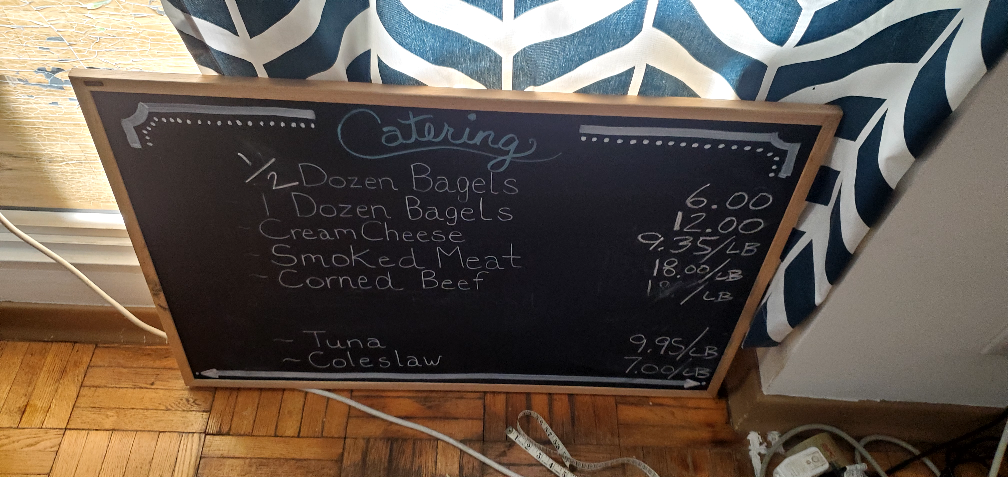 Catering
1/2 Dozen Bagels 6.00
1 Dozen Bagels 12.00
- Cream Cheese 9.35/LB
- Smoked Meat 18.00/LB
- Corned Beef /LB
- Tuna 9.95/LB
~ Coleslaw 7.00/LB